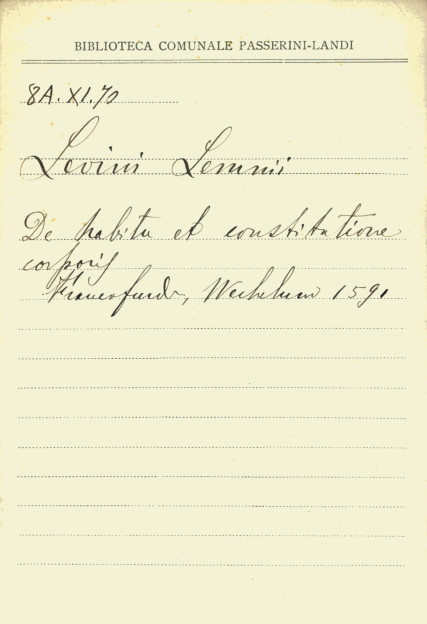 BIBLIOTECA COMUNALE PASSERINI-LANDI
8A.XI.70
Levini Lemnii
De habitu et constitutione
corporis
Francofurdi, Wechelum 1591